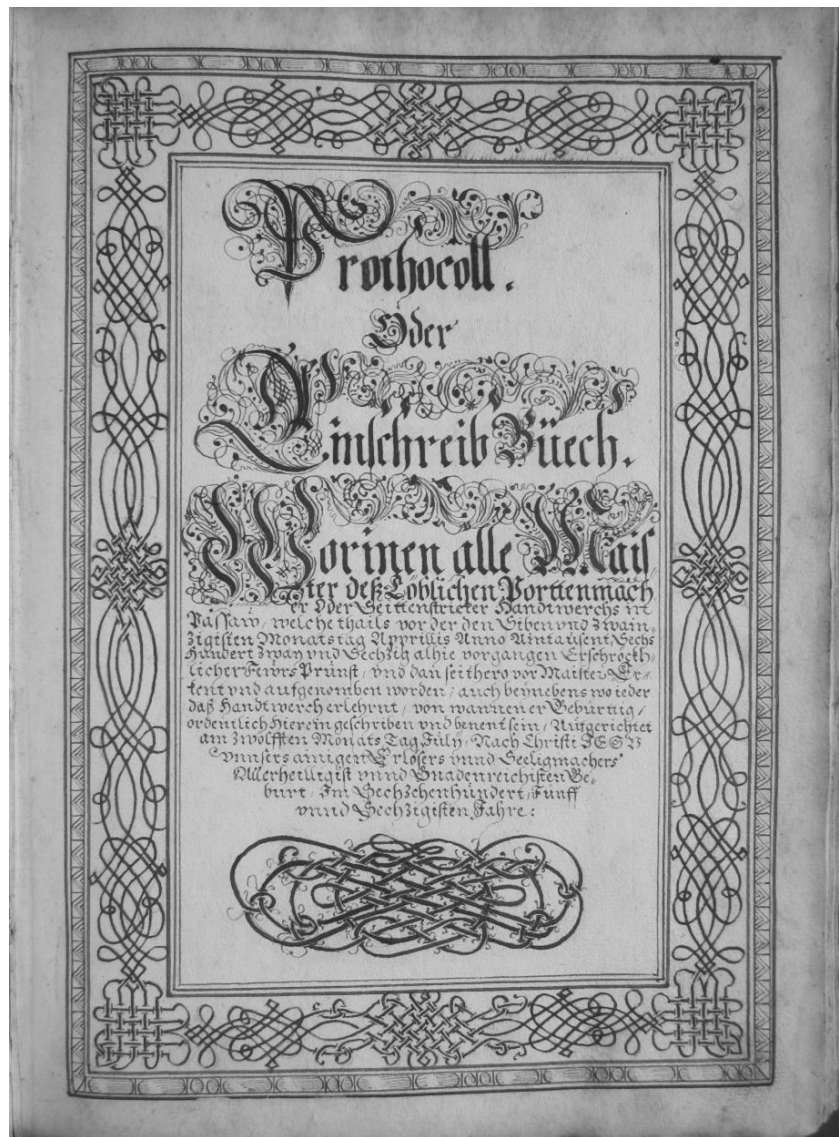 Prothocoll.
Oder
Einschreib Büech.
Worinen alle Mais
ter deß Löblichen Porttenmach
er Oder Seittenstricker Handtwerchs in
Passaw, welche thails vor der den Siben vnd Zwain,
Zigisten Monatstag Apprillis Anno Aintausent Sechs
Hundert Zway vnd Sechzih alhie vorgangen Erschröckh,
licher Fewrs Prünst, vnd dan seithero vor Maister Er,
kent vnd aufgenomben worden, auch beynebens wo ieder
daß Handtwerch erlehrnt, von wannen er Gebürtig,
ordentlich Hierein geschriben vnd benent sein, Aufgerichtet
am Zwölfften Monats Tag July, Nach Christi JESV
vnnsers ainigen Erlösers vnnd Seeligmachers
Allerheilligist vnnd Gnadenreichisten Ge,
burt, Im Sechzehenhundert, Fünff
vnnd Sechzigisten Jahre: